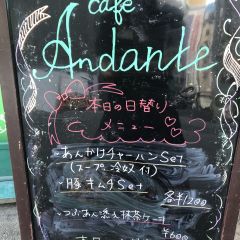 cafe
Andante
本日の日替り
メニュー
・あんかけチャーハンSet
(スープ、冷奴付)
・豚キムチSet
各¥1200
・つぶあん添え抹茶ケーキ
¥600